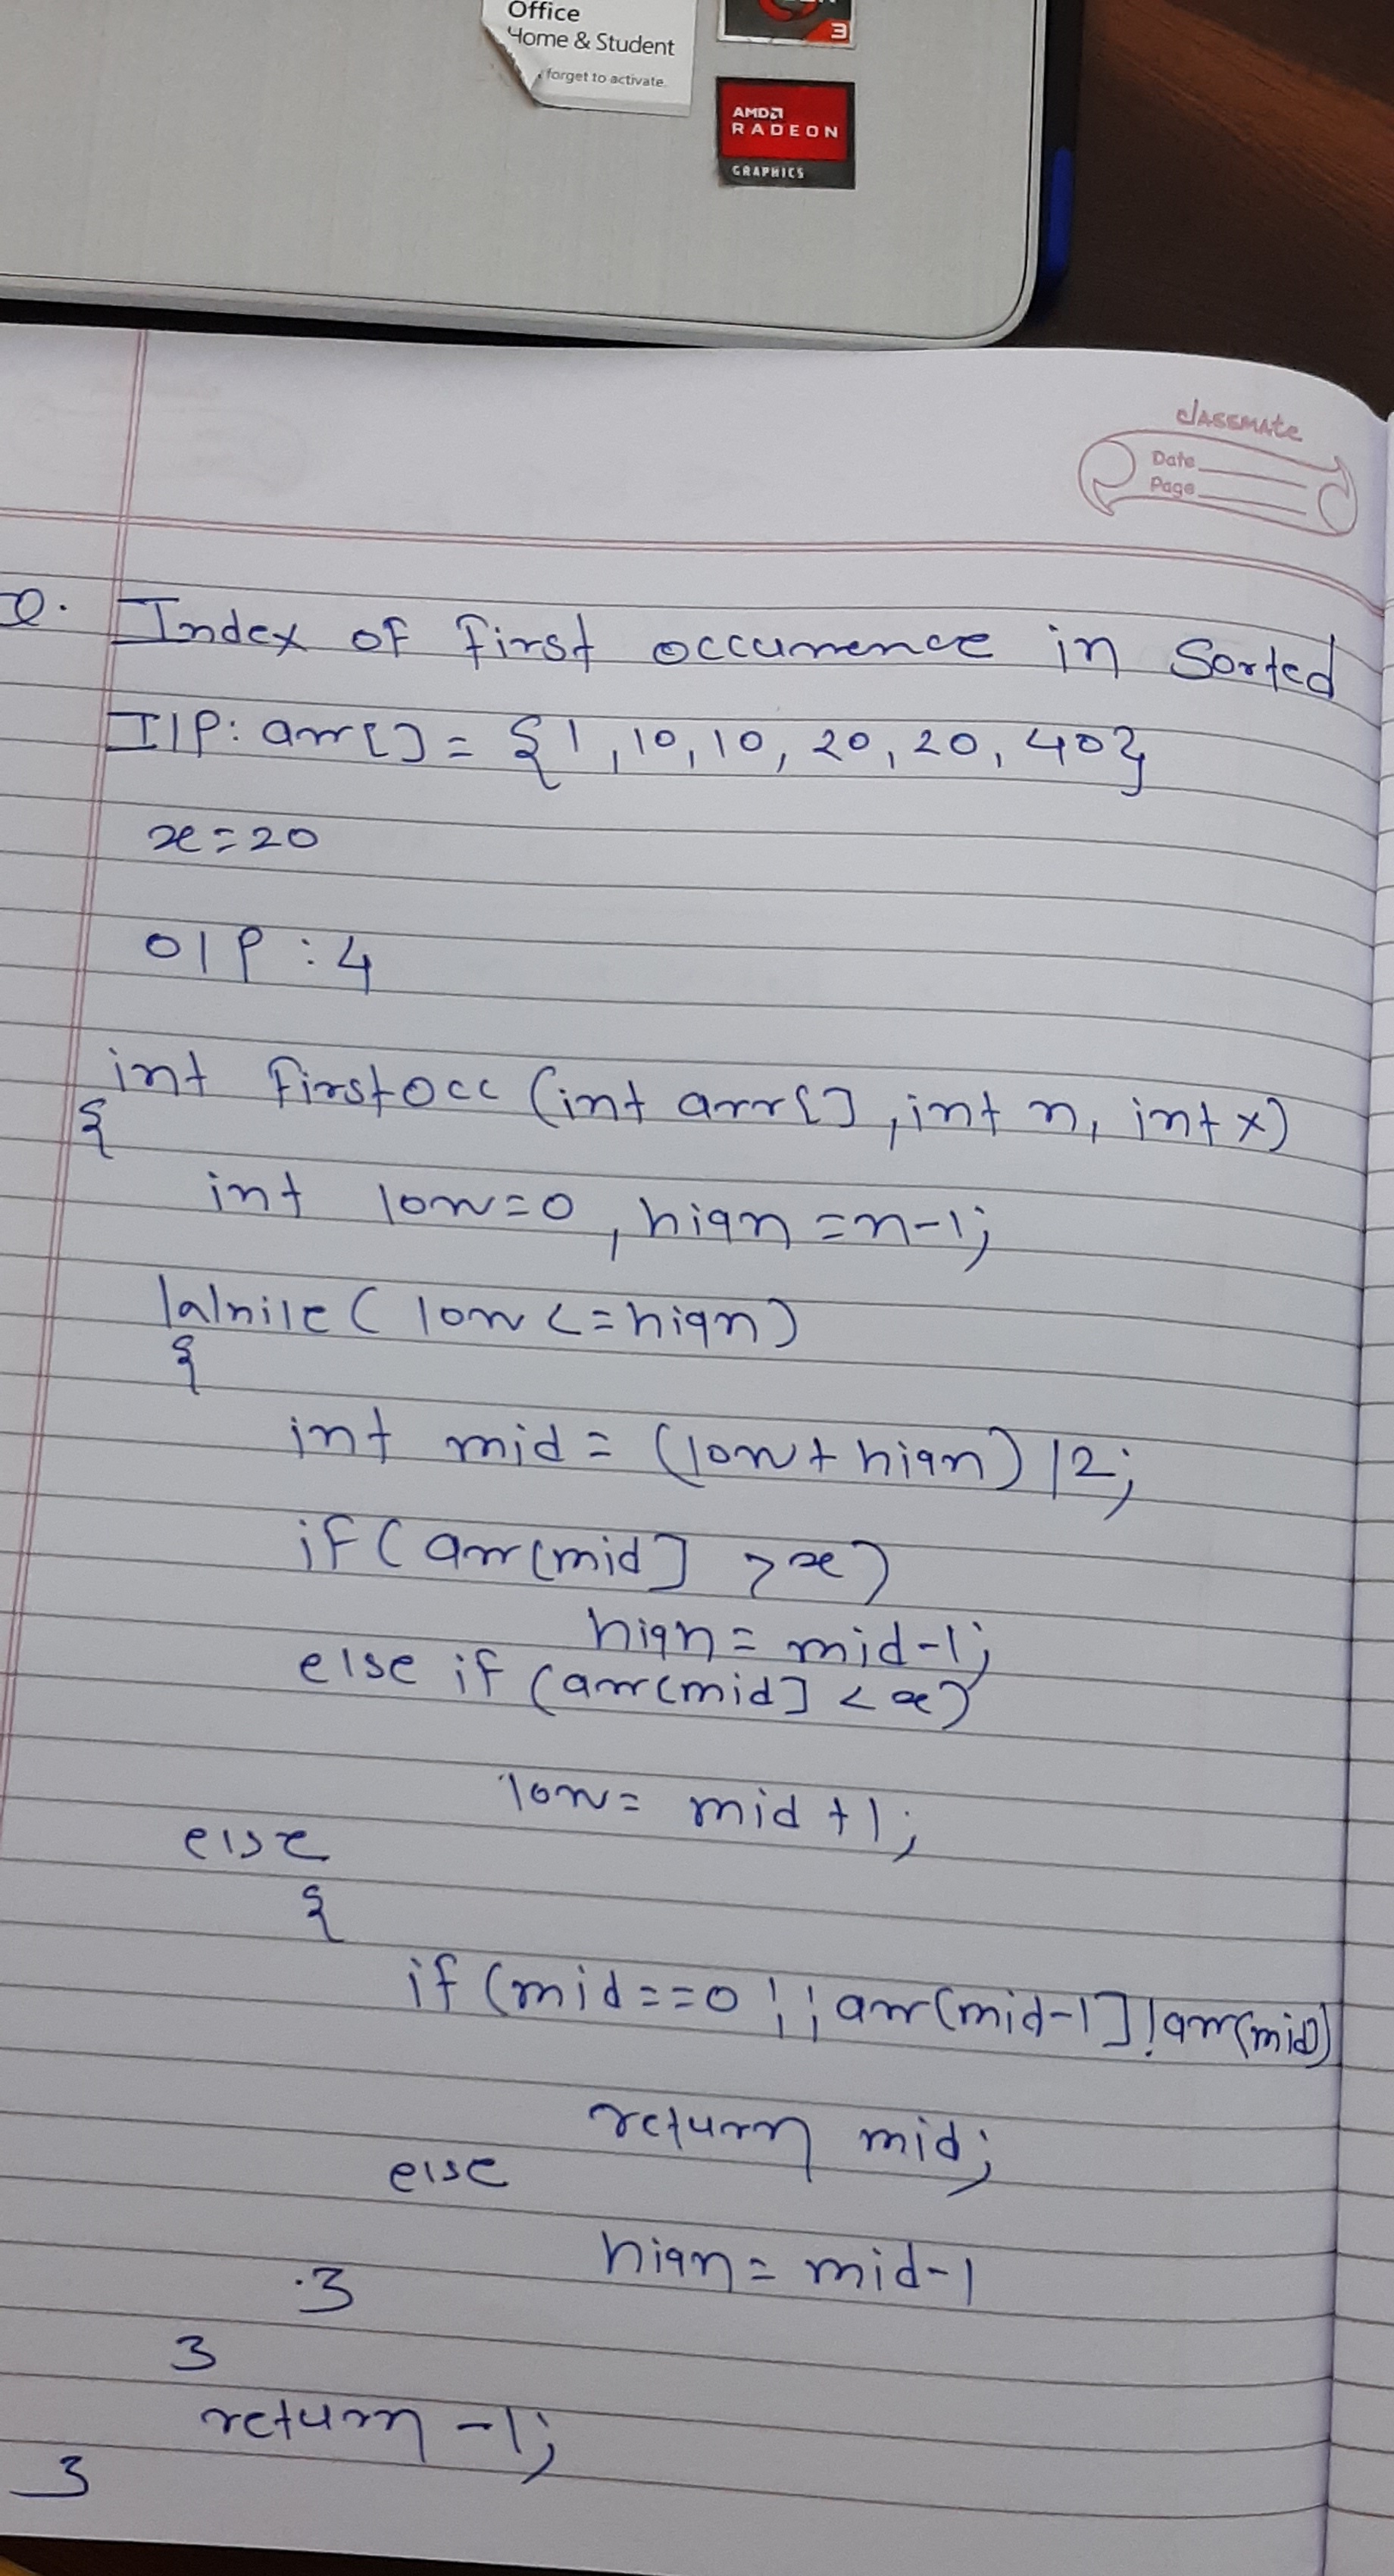 Office
Home & Student
forget to activate.
3
AMD
RADEON
GRAPHICS
classmate
Date
Page
Q. Index of first occurrence in Sorted
I/P: arr[] = {1, 10, 10, 20, 20, 40}
x=20
O/P : 4
int firstOcc (int arr[], int n, int x)
{
int low=0, high=n-1;
while( low <= high)
{
int mid = (low + high) /2;
if( arr[mid] > x)
high = mid-1;
else if (arr[mid] < x)
low= mid +1;
else
{
if (mid==0 || arr[mid-1] ! arr[mid])
return mid;
else
high = mid-1
}
}
return -1;
}